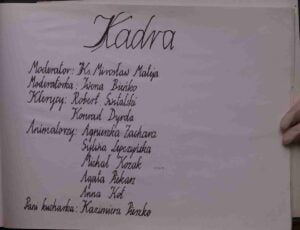 Kadra
Moderator: Ks. Mirosław Matyja
Moderatorka: Iwona Bieńko
Klerycy: Robert Świtalski
Konrad Dyrda
Animatorzy: Agnieszka Zacharz
Sylwia Lepczyńska
Michał Kozak
Agata Rękarz
Anna Kot
Pani kucharka: Kazimiera Puszko